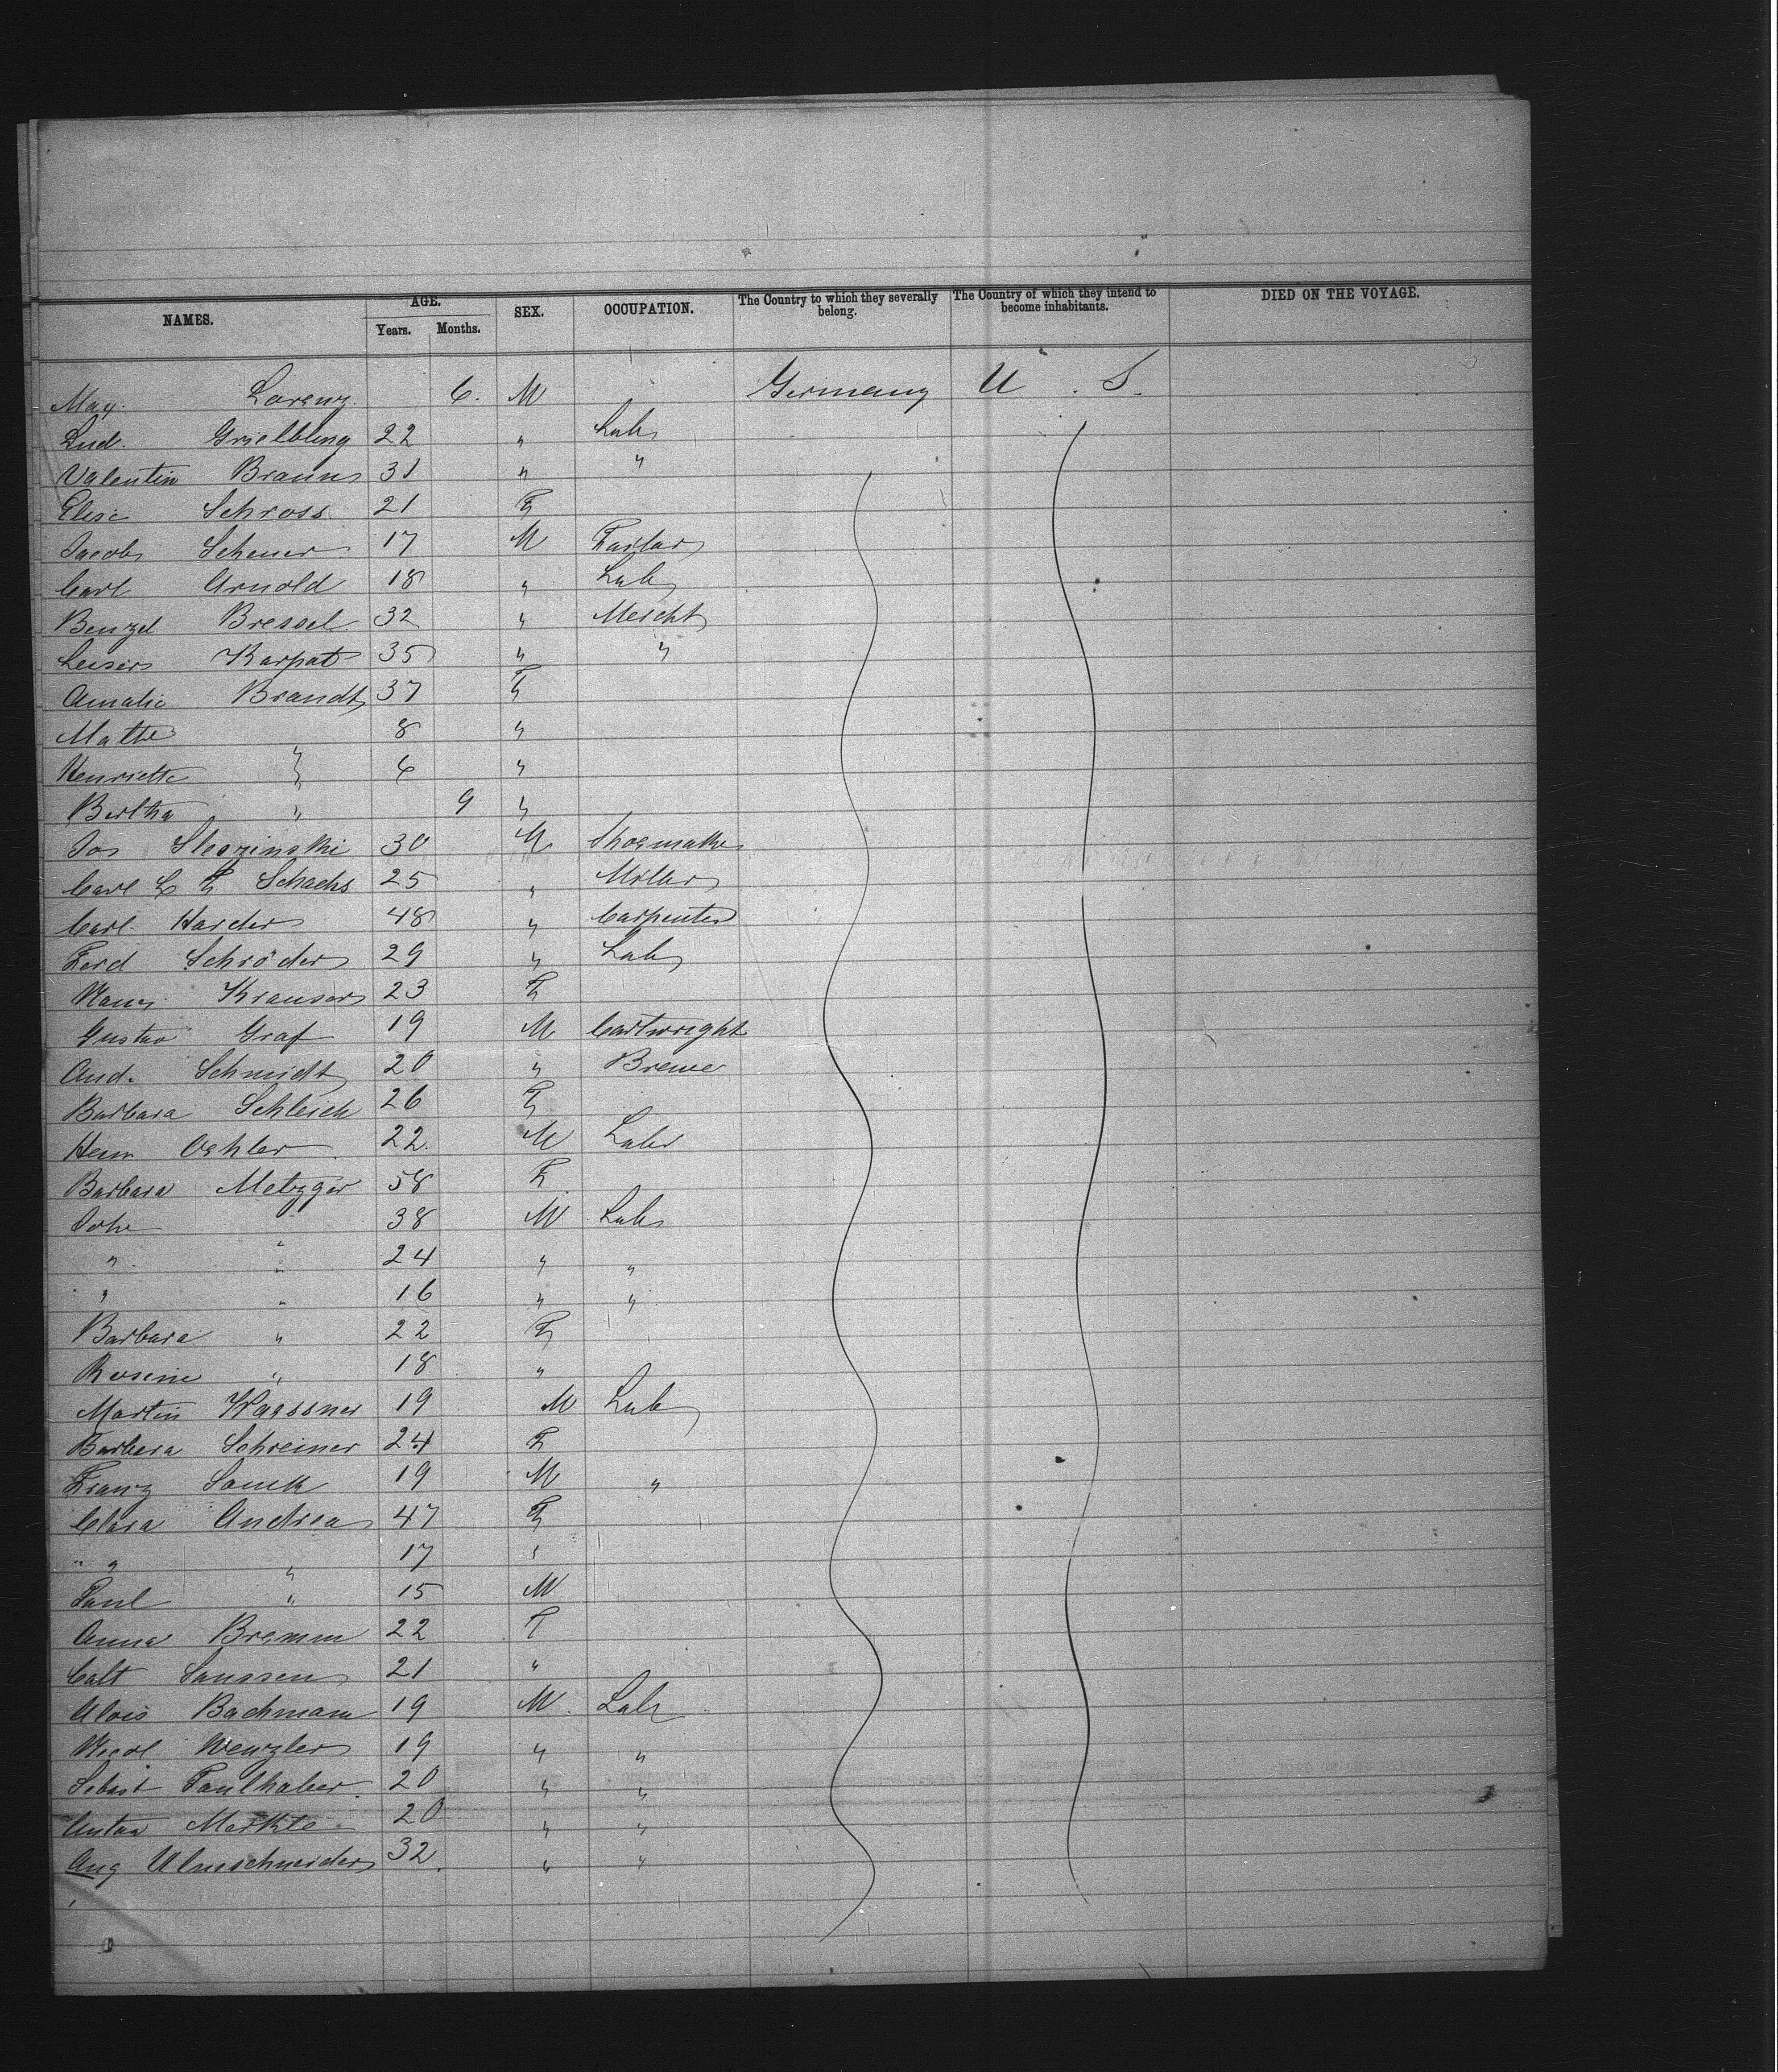 NAMES. AGE. SEX. OCCUPATION. The Country to which they severally belong. The Country of which they intend to become inhabitants. DIED ON THE VOYAGE.
Years. Months.
Max Lorenz 6. M Germany U. S.
Lud. Grielbling 22 " Lab
Valentin Braun 31 " "
Elise Schross 21 F
Jacob Scheuer 17 M Tailor
Carl Arnold 18 " Lab
Benzel Bressel 32 " Mercht
Leiser Karpat 35 " "
Amalie Brandt 37 F
Malte 8 "
Henriette " 6 "
Bertha " 9 "
Jos Slezinski 30 M Shoemaker
Carl L F Schachs 25 " Miller
Carl Harder 48 " Carpenter
Ferd Schröder 29 " Lab
Krauser 23 F
Gustav Graf 19 M Cartwright
And. Schmidt 20 " Brewe
Barbara Schleich 26 F
Herm Oehler 22 M Labr
Barbara Metzger 58 F
Joh " 38 M Lab
" " 24 " "
" " 16 " "
Barbara " 22 F
Rosine " 18 "
Martin Waessner 19 M Lab
Barbara Schreiner 24 F
Franz Sauck 19 M "
Clara Andrea 47 F
" " 17 "
Paul " 15 M
Anna Bremm 22 F
Janssen 21 "
Alois Bachmann 19 M Lab
Wenzler 19 " "
Sebast Faulhaber 20 " "
Anton Merkte 20 " "
Aug Ulmschneider 32 " "